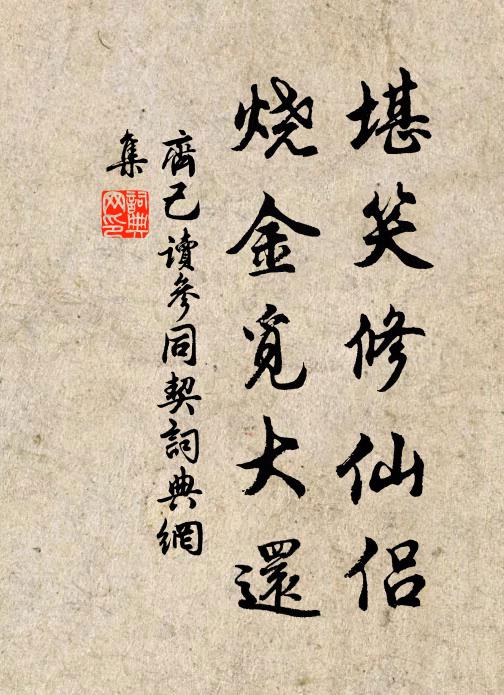 堪笑修仙侣
烧金觅大還
齊己讀參同契詞典網
集
詞典
网印